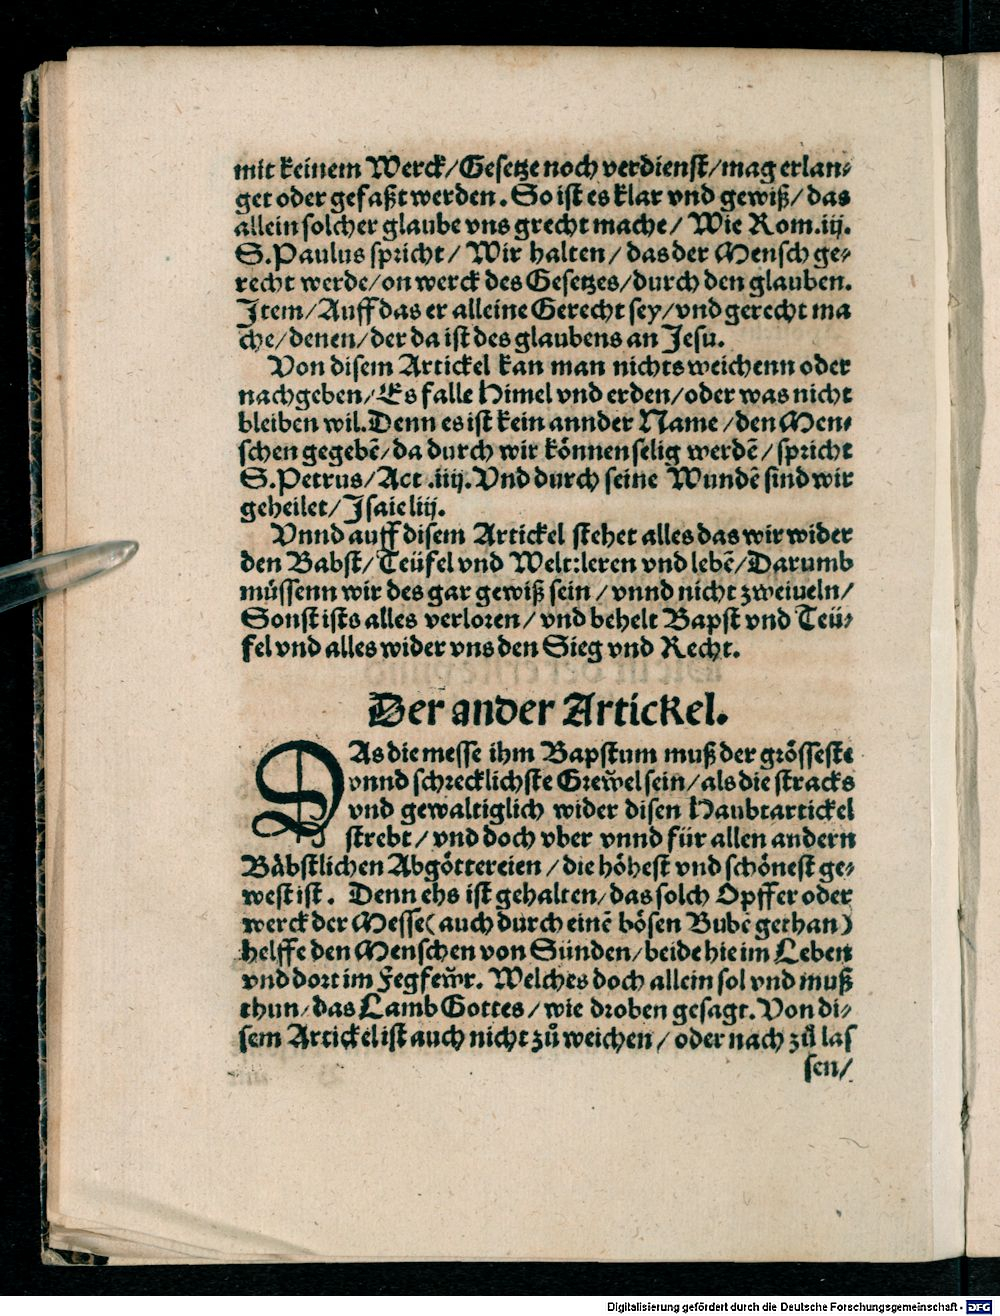 mit keinem Werck/Gesetze noch verdienst/mag erlan⸗
get oder gefaßt werden. So ist es klar vnd gewiß/das
allein solcher glaube vns grecht mache/ Wie Rom.iij.
S.Paulus spricht/ Wir halten/ das der Mensch ge⸗
recht werde/on werck des Gesetzes/durch den glauben.
Item/Auff das er alleine Gerecht sey/vnd gerecht ma
che/denen/der da ist des glaubens an Jesu.
Von disem Artickel kan man nichts weichenn oder
nachgeben/Es falle Himel vnd erden/oder was nicht
bleiben wil.Denn es ist kein annder Name/den Men⸗
schen gegebē/da durch wir können selig werdē/ spricht
S.Petrus/Act.iiij.Vnd durch seine Wundē sind wir
geheilet/Isaie liij.
Vnnd auff disem Artickel stehet alles das wir wider
den Babst/Teüfel vnd Welt:leren vnd lebē/Darumb
müssenn wir des gar gewiß sein/vnnd nicht zweiueln/
Sonst ists alles verloren/vnd behelt Bapst vnd Teü⸗
fel vnd alles wider vns den Sieg vnd Recht.
Der ander Artickel.
DAs die messe ihm Bapstum muß der grösseste
vnnd schrecklichste Grew̃el sein/als die stracks
vnd gewaltiglich wider disen Haubtartickel
strebt/vnd doch vber vnnd für allen andern
Bäbstlichen Abgöttereien/die höhest vnd schönest ge⸗
west ist. Denn ehs ist gehalten/das solch Opffer oder
werck der Messe(auch durch einē bösen Bubē gethan)
helffe den Menschen von Sünden/beide hie im Leben
vnd dort im Fegfew̃r. Welches doch allein sol vnd muß
thun/das Lamb Gottes/wie droben gesagt. Von di⸗
sem Artickel ist auch nicht zů weichen/oder nach zů las
sen/
Digitalisierung gefördert durch die Deutsche Forschungsgemeinschaft - DFG